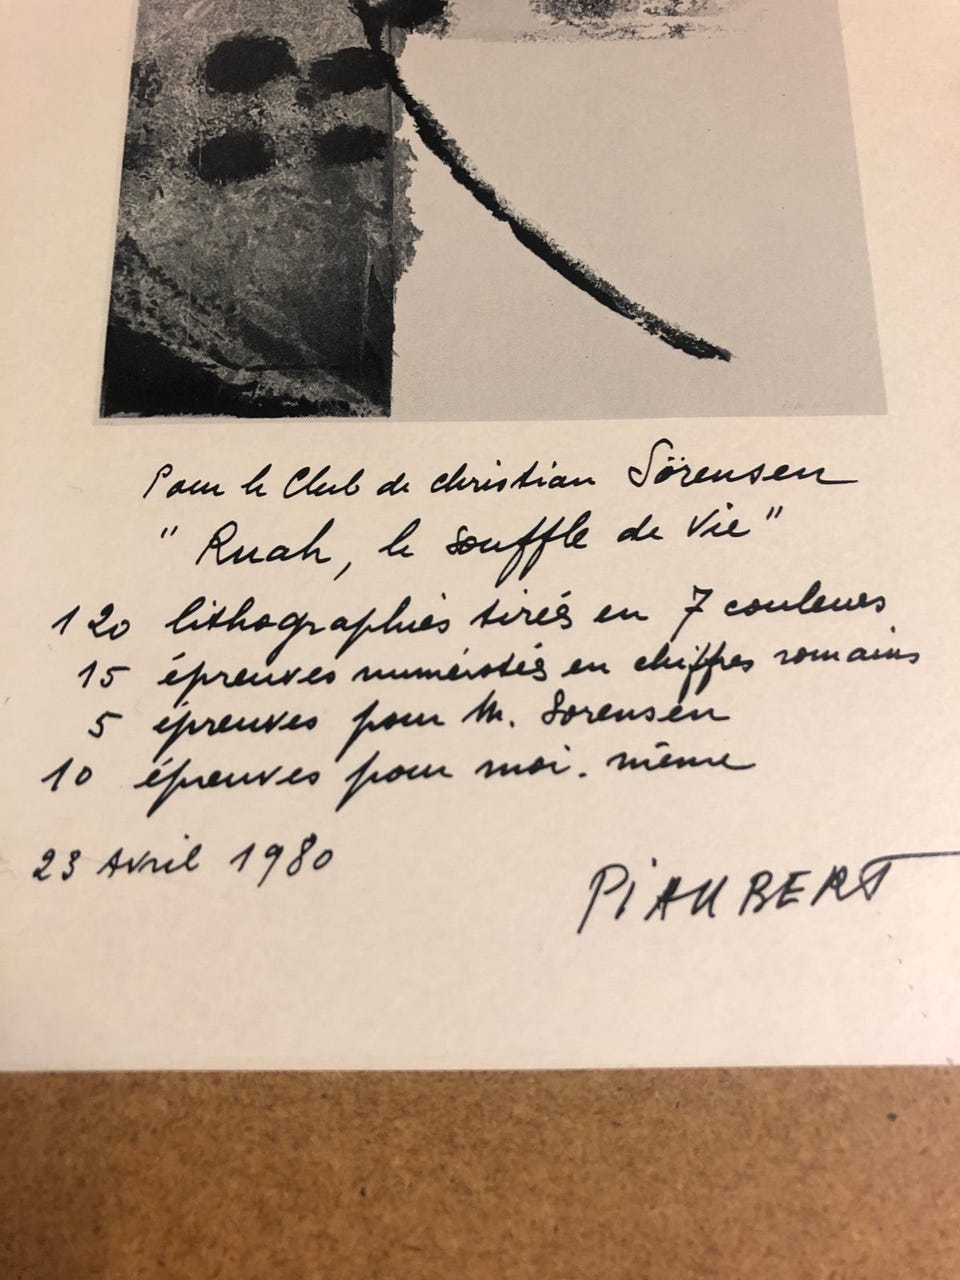 Pour le Club de christian Sörensen
" Ruah, le souffle de Vie "
120 lithographies tirés en 7 couleurs
15 épreuves numérotés en chiffres romains
5 épreuves pour M. Sorensen
10 épreuves pour moi. même
23 Avril 1980
PiAUBERT